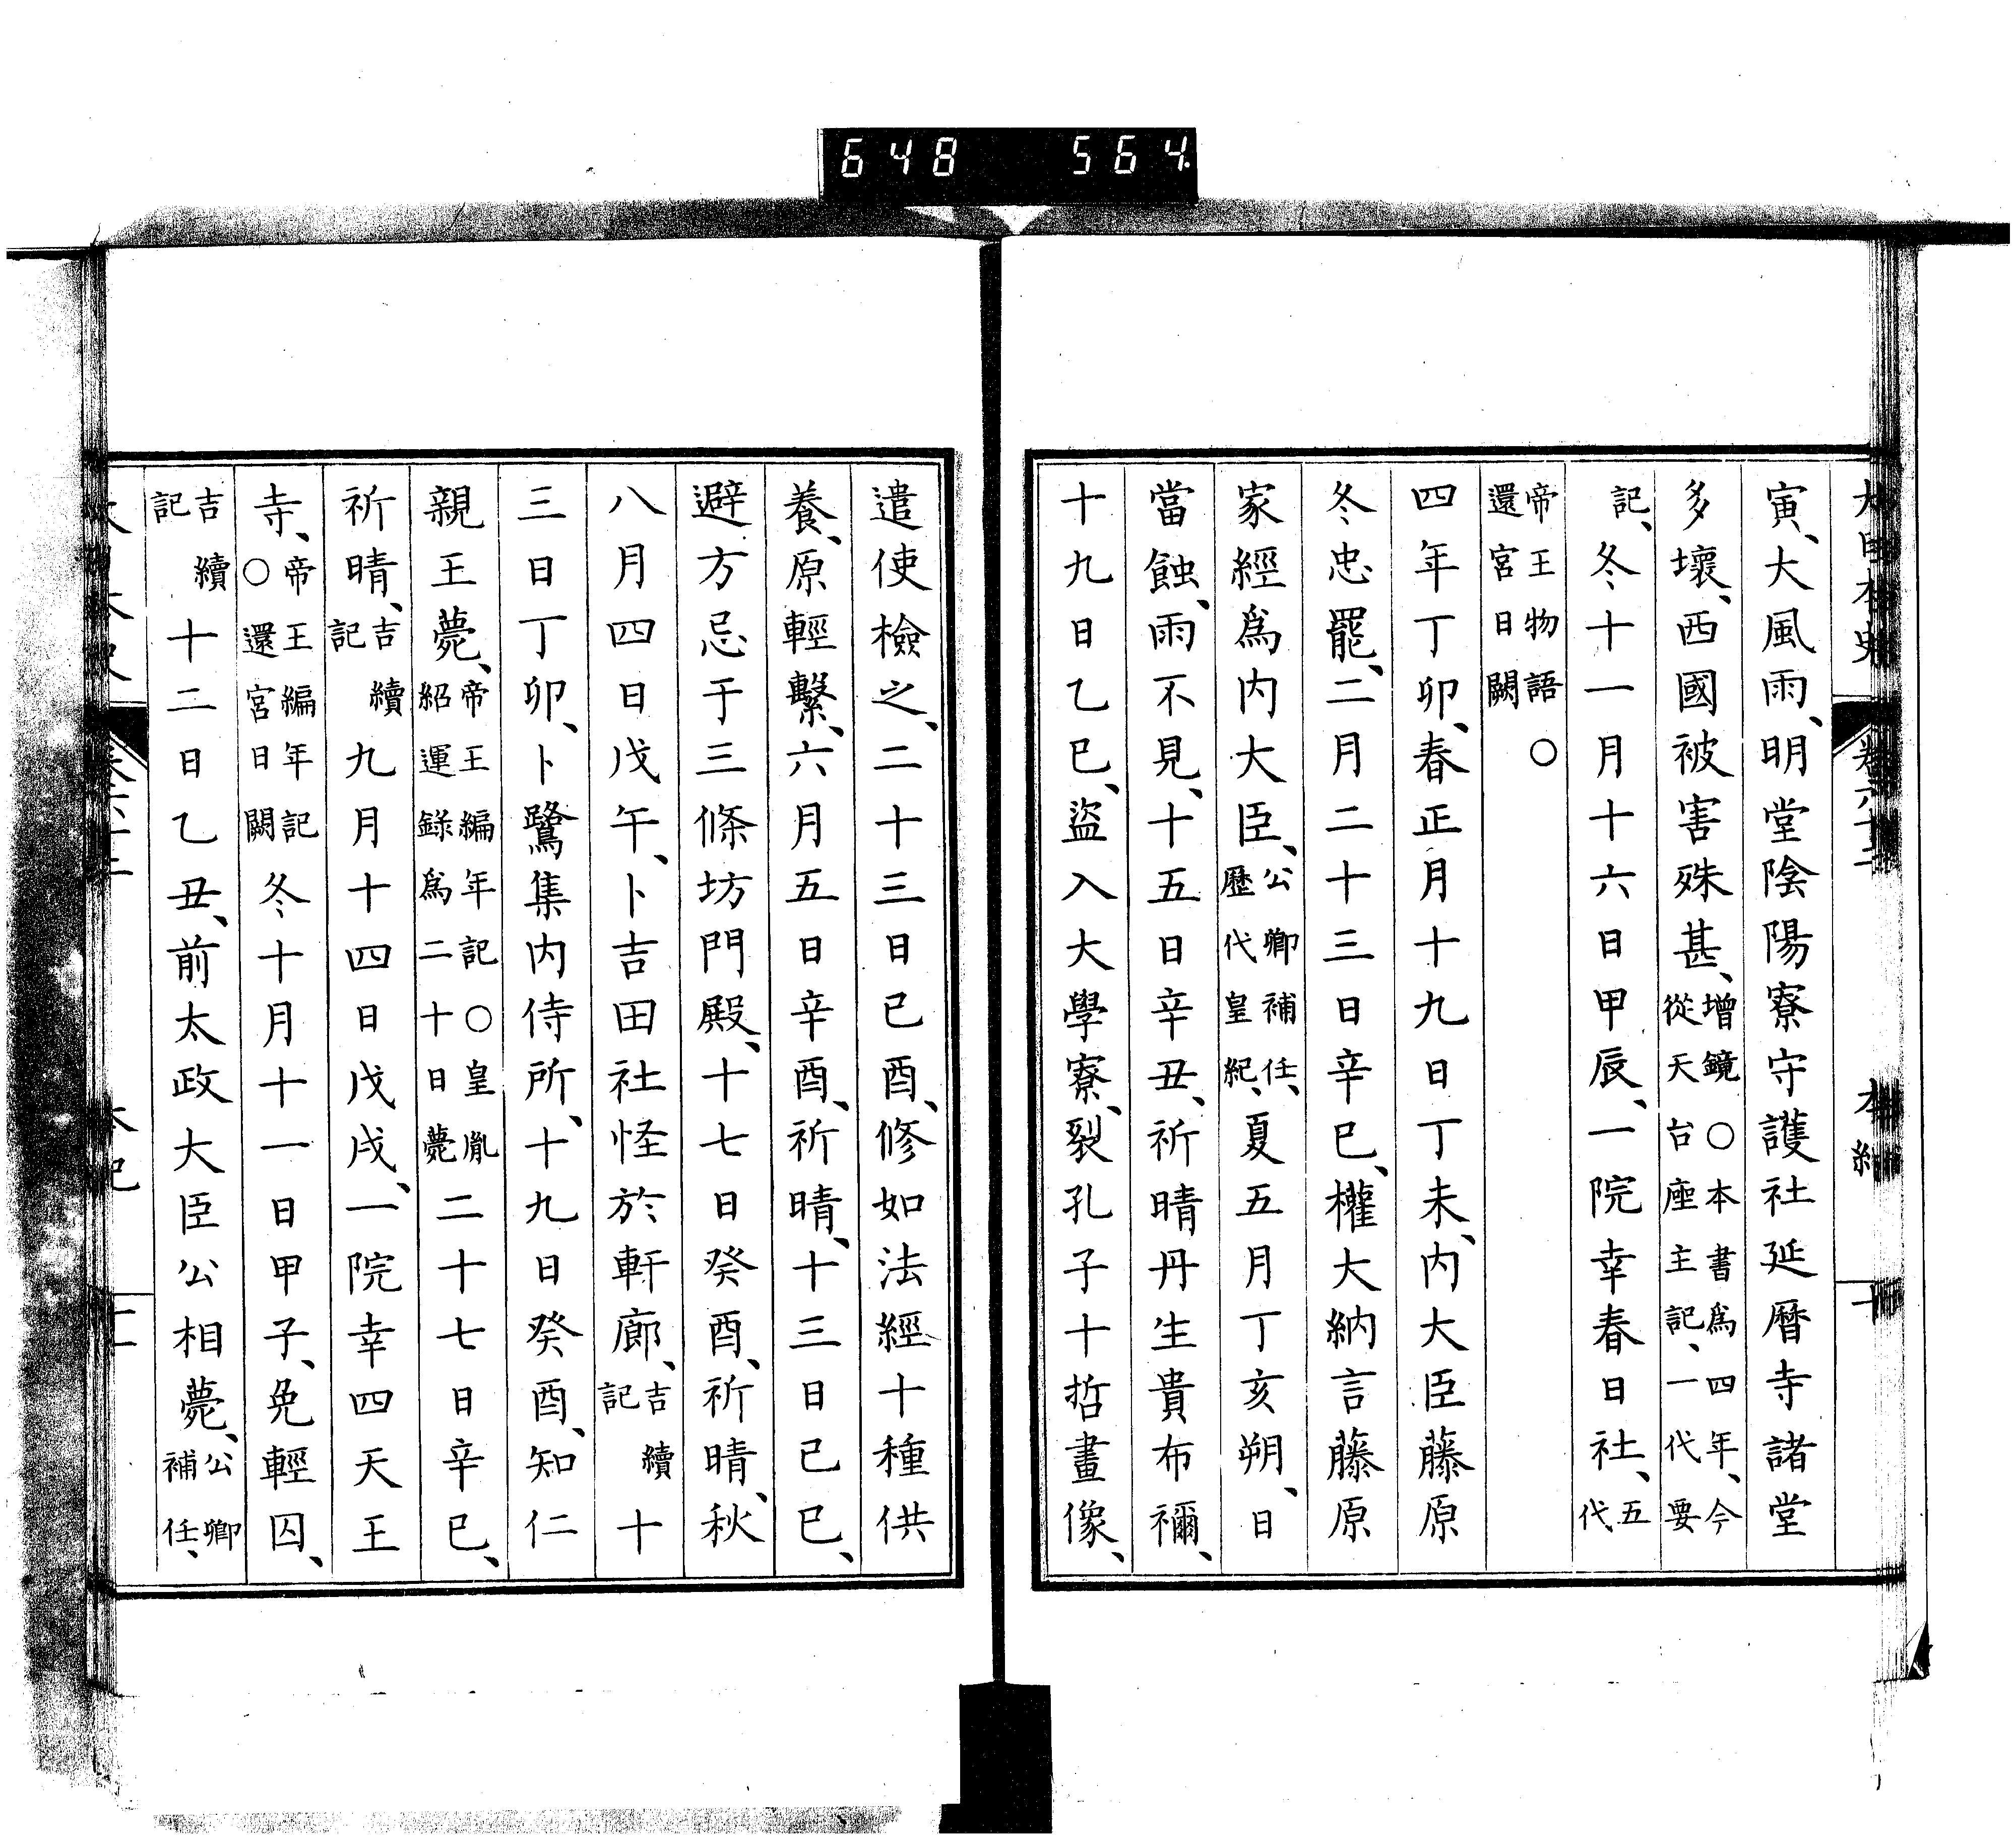 648 564
大日本史 卷六十二 本紀 十
寅、大風雨、明堂陰陽寮守護社延曆寺諸堂
多壞、西國被害殊甚、增鏡○本書爲四年、今從天台座主記、一代要
記、冬十一月十六日甲辰、一院幸春日社、五代
帝王物語○還宮日闕
四年丁卯、春正月十九日丁未、內大臣藤原
冬忠罷、二月二十三日辛巳、權大納言藤原
家經爲內大臣、公卿補任、歷代皇紀、夏五月丁亥朔、日
當蝕、雨不見、十五日辛丑、祈晴丹生貴布禰、
十九日乙巳、盜入大學寮、裂孔子十哲畫像、
遣使檢之、二十三日己酉、修如法經十種供
養、原輕繫、六月五日辛酉、祈晴、十三日己巳、
避方忌于三條坊門殿、十七日癸酉、祈晴、秋
八月四日戊午、卜吉田社怪於軒廊、吉續記十
三日丁卯、卜鷺集內侍所、十九日癸酉、知仁
親王薨、帝王編年記○皇胤紹運錄爲二十日薨二十七日辛巳、
祈晴、吉續記九月十四日戊戌、一院幸四天王
寺、帝王編年記○還宮日闕冬十月十一日甲子、免輕囚、
吉續記十二日乙丑、前太政大臣公相薨、公卿補任、
本紀